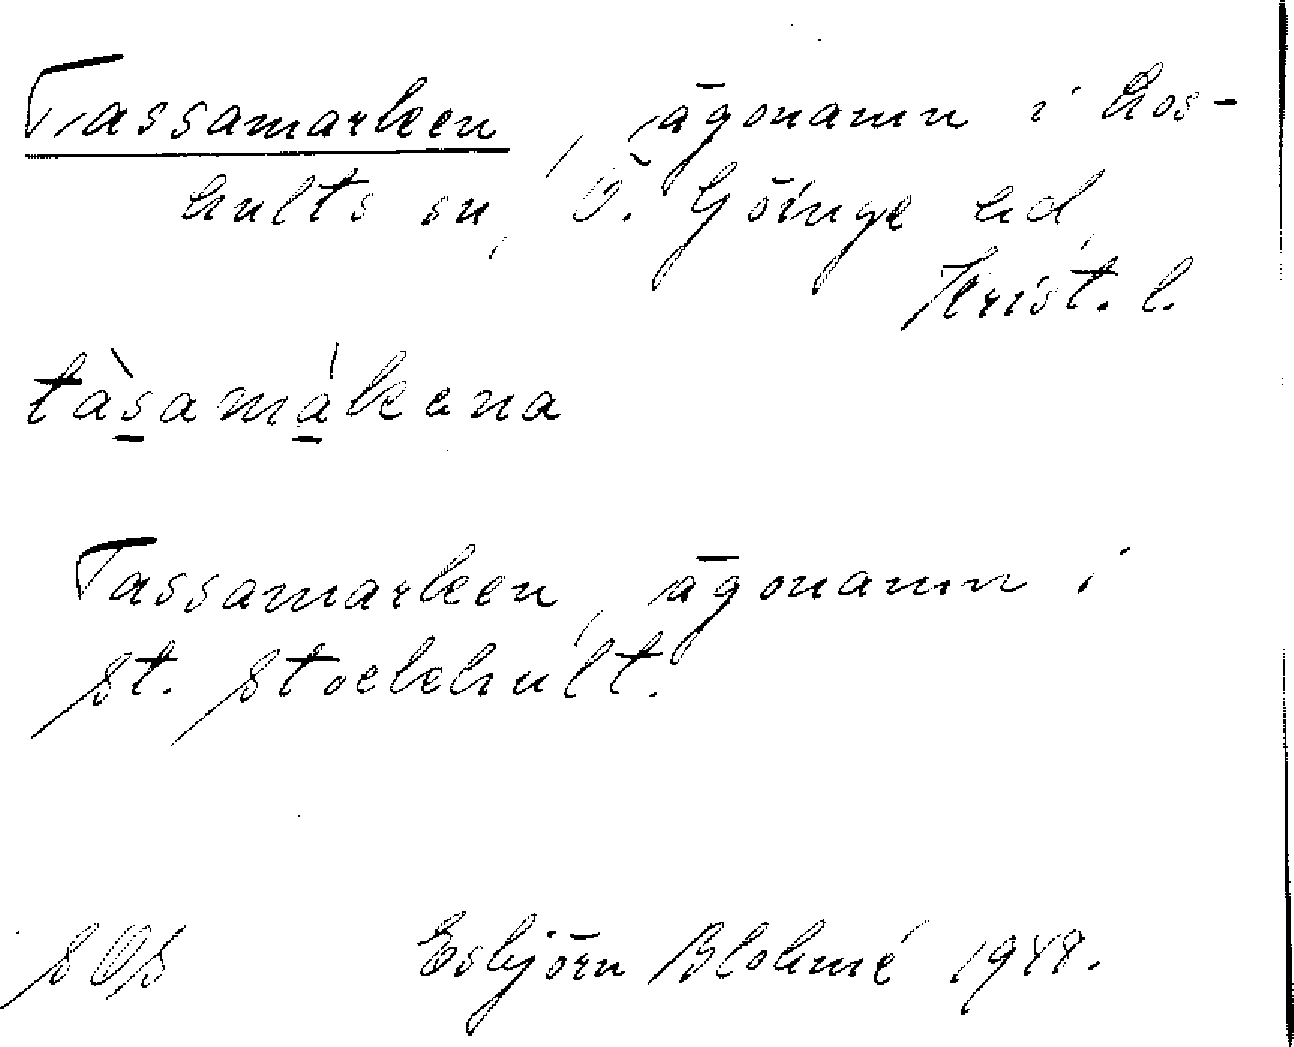 Tassamarken, ägonamn i Los-
hults sn, Ö. Göinge hd,
Krist. l.
tàsamákena
Tassamarken, ägonamn i
St. Stockhult.
SOS Esbjörn Blohmé 1948.